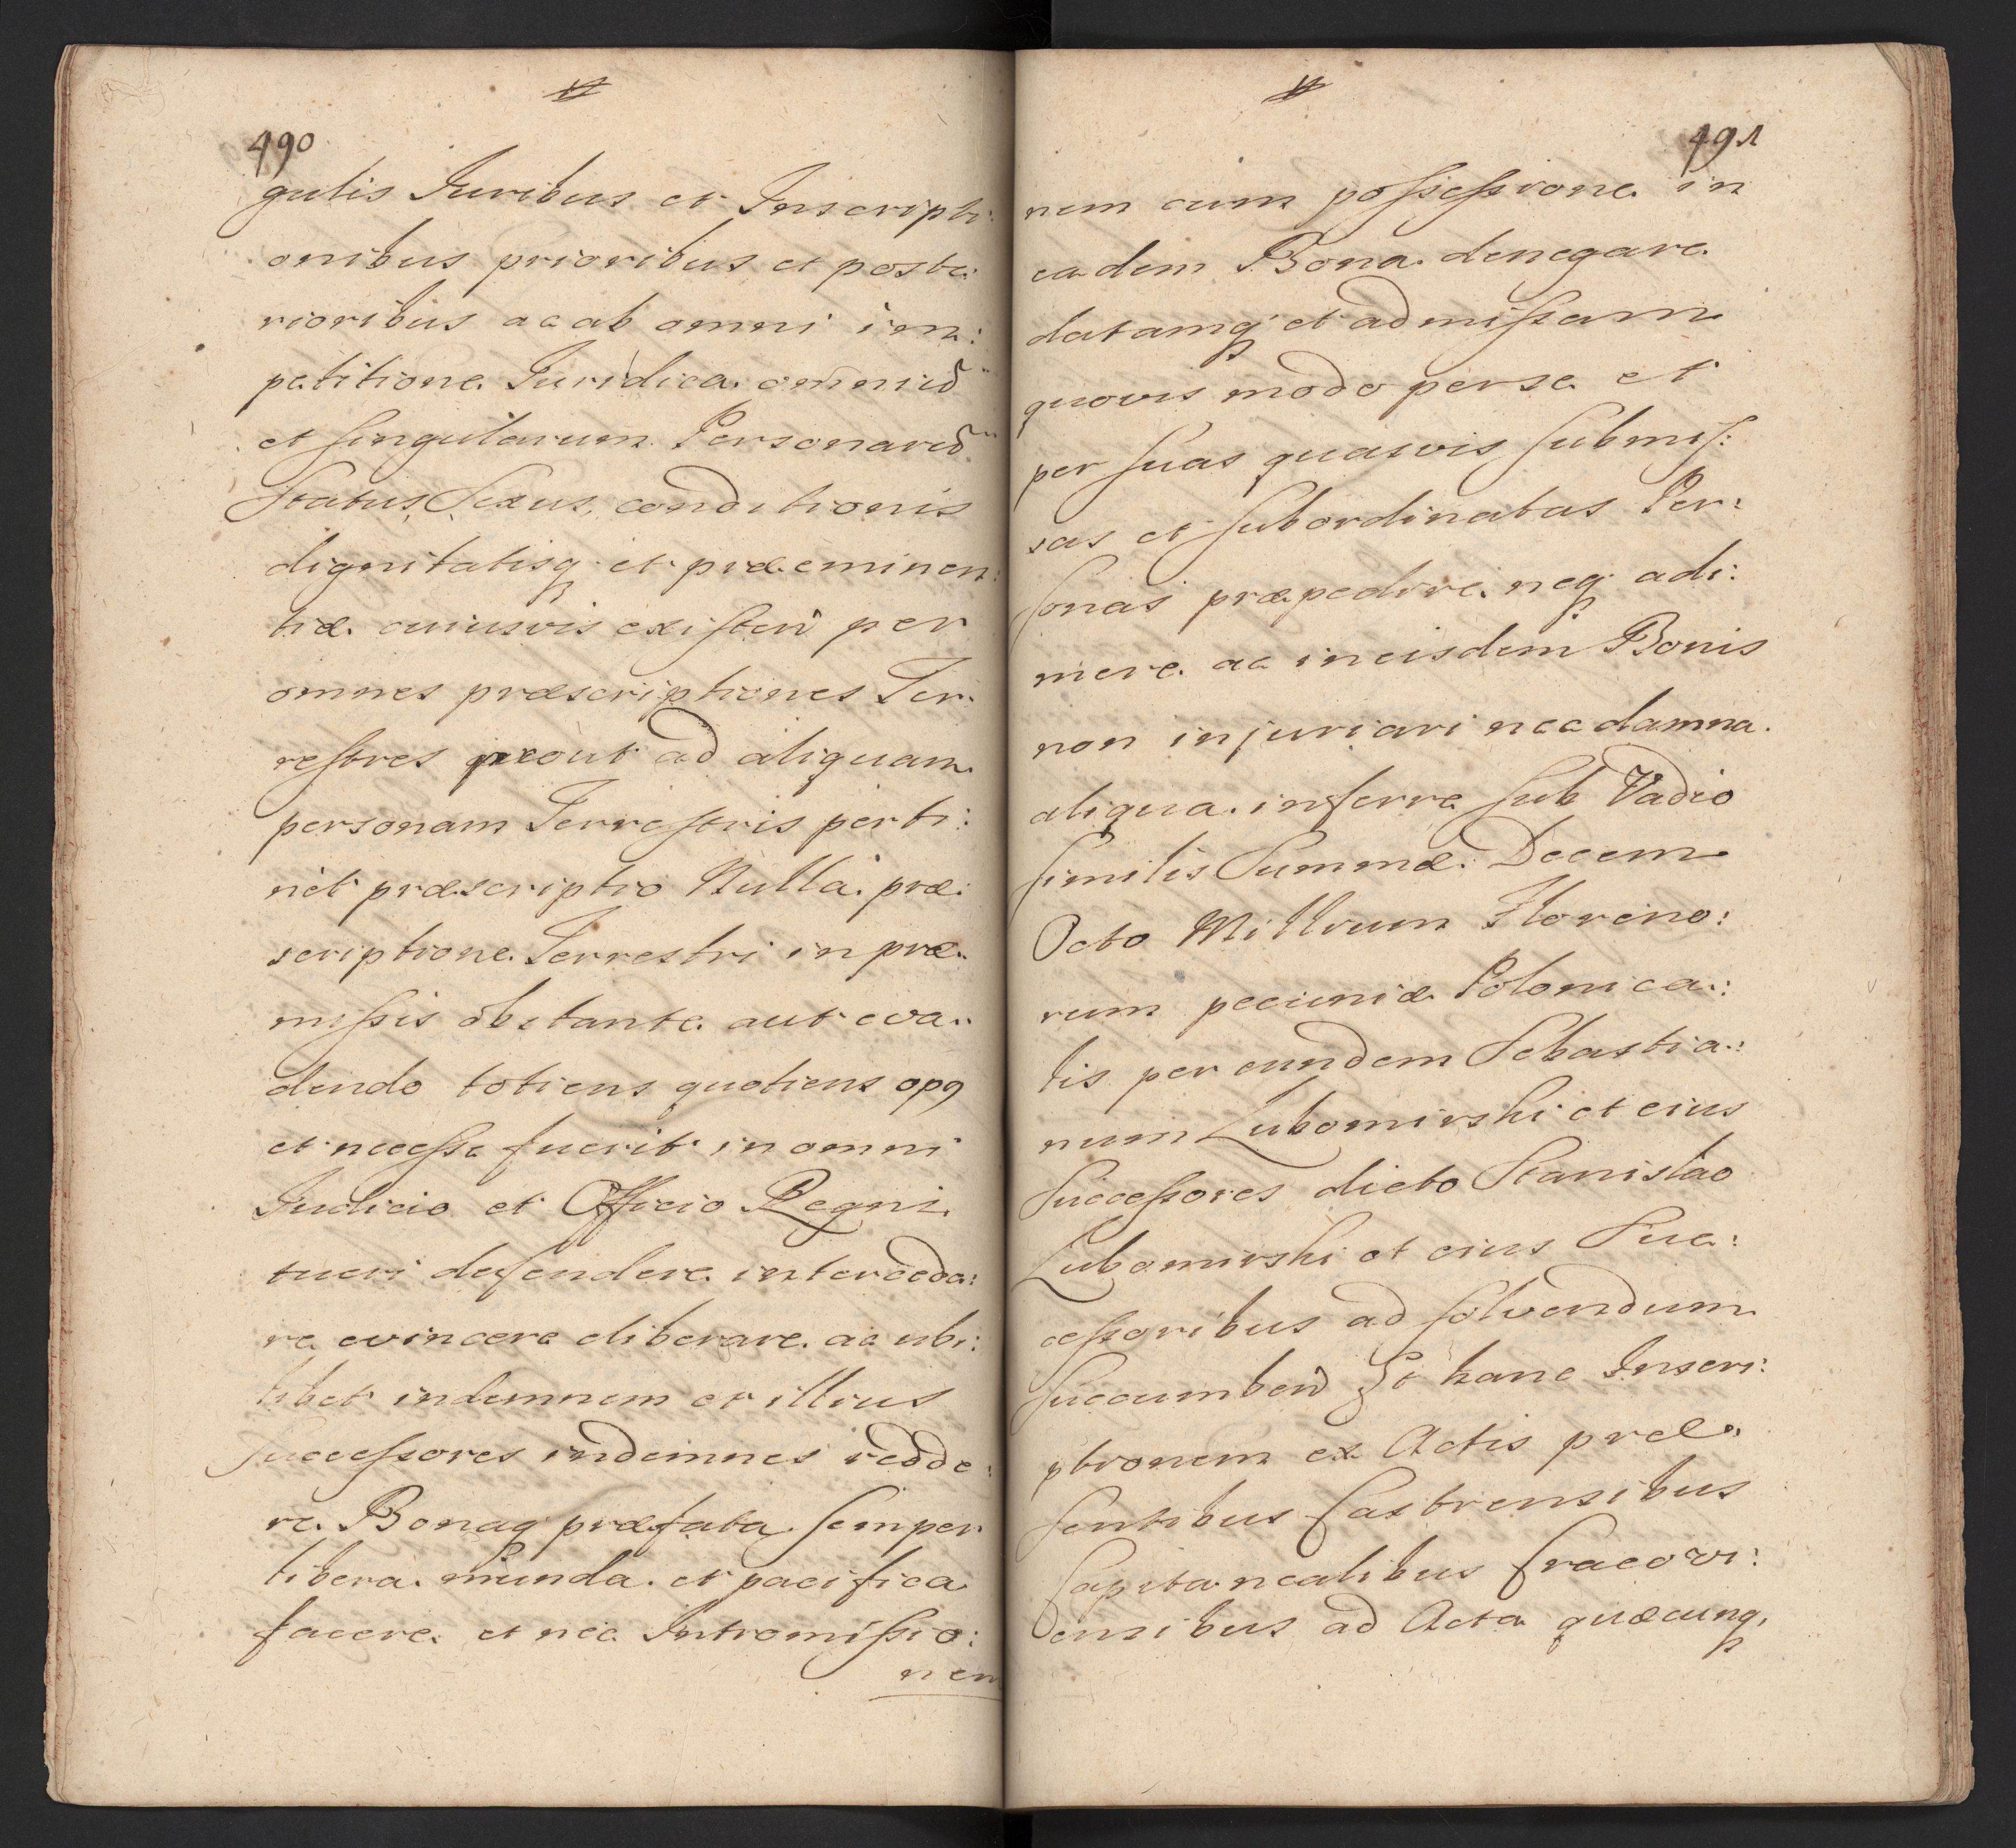 490
gulis Juribus et Inscripti:
onibus prioribus et poste:
rioribus ac ab omni im:
petitione Juridica omniũ
et singularum Personarũ
Status, Sexus, conditionis
dignitatisq; et præeminen:
tiæ cuiusvis existeñ per
omnes præscriptiones Ter:
restres prout ad aliquam
personam Terrestris perti:
net præscriptio Nulla præ:
scriptione Terrestri in præ:
missis obstante aut eva:
dendo totiens quotiens opq
et necesse fuerit in omni
Judicio et Officio Regni
tueri defendere intercede:
re evincere eliberare ac ubi:
libet indemnem et illius
successores indemnes redde:
re Bonaq; præfata semper
libera munda et pacifica
facere et nec Intromissio:
nem
491
nem cum possessione in
eadem Bona denegare
datamq; et admissam
quovis modo per se et
per suas quasvis submis:
sas et subordinatas Per:
sonas præpedire neq; adi:
mere ac in eisdem Bonis
non injuriari nec damna
aliqua inferre sub Vadio
similis Summæ Decem
Octo Millium Floreno:
rum pecuniæ Polonica:
lis per eundem Sebastia:
num Lubomirski et eius
Successores dicto Stanislao
Lubomirski et eius Suc:
cessoribus ad solvendum
succumbeñ Et hanc Inscri:
ptionem ex Actis præ:
sentibus Castrensibus
Capitanealibus Cracovi:
ensibus ad Acta quæcunq;